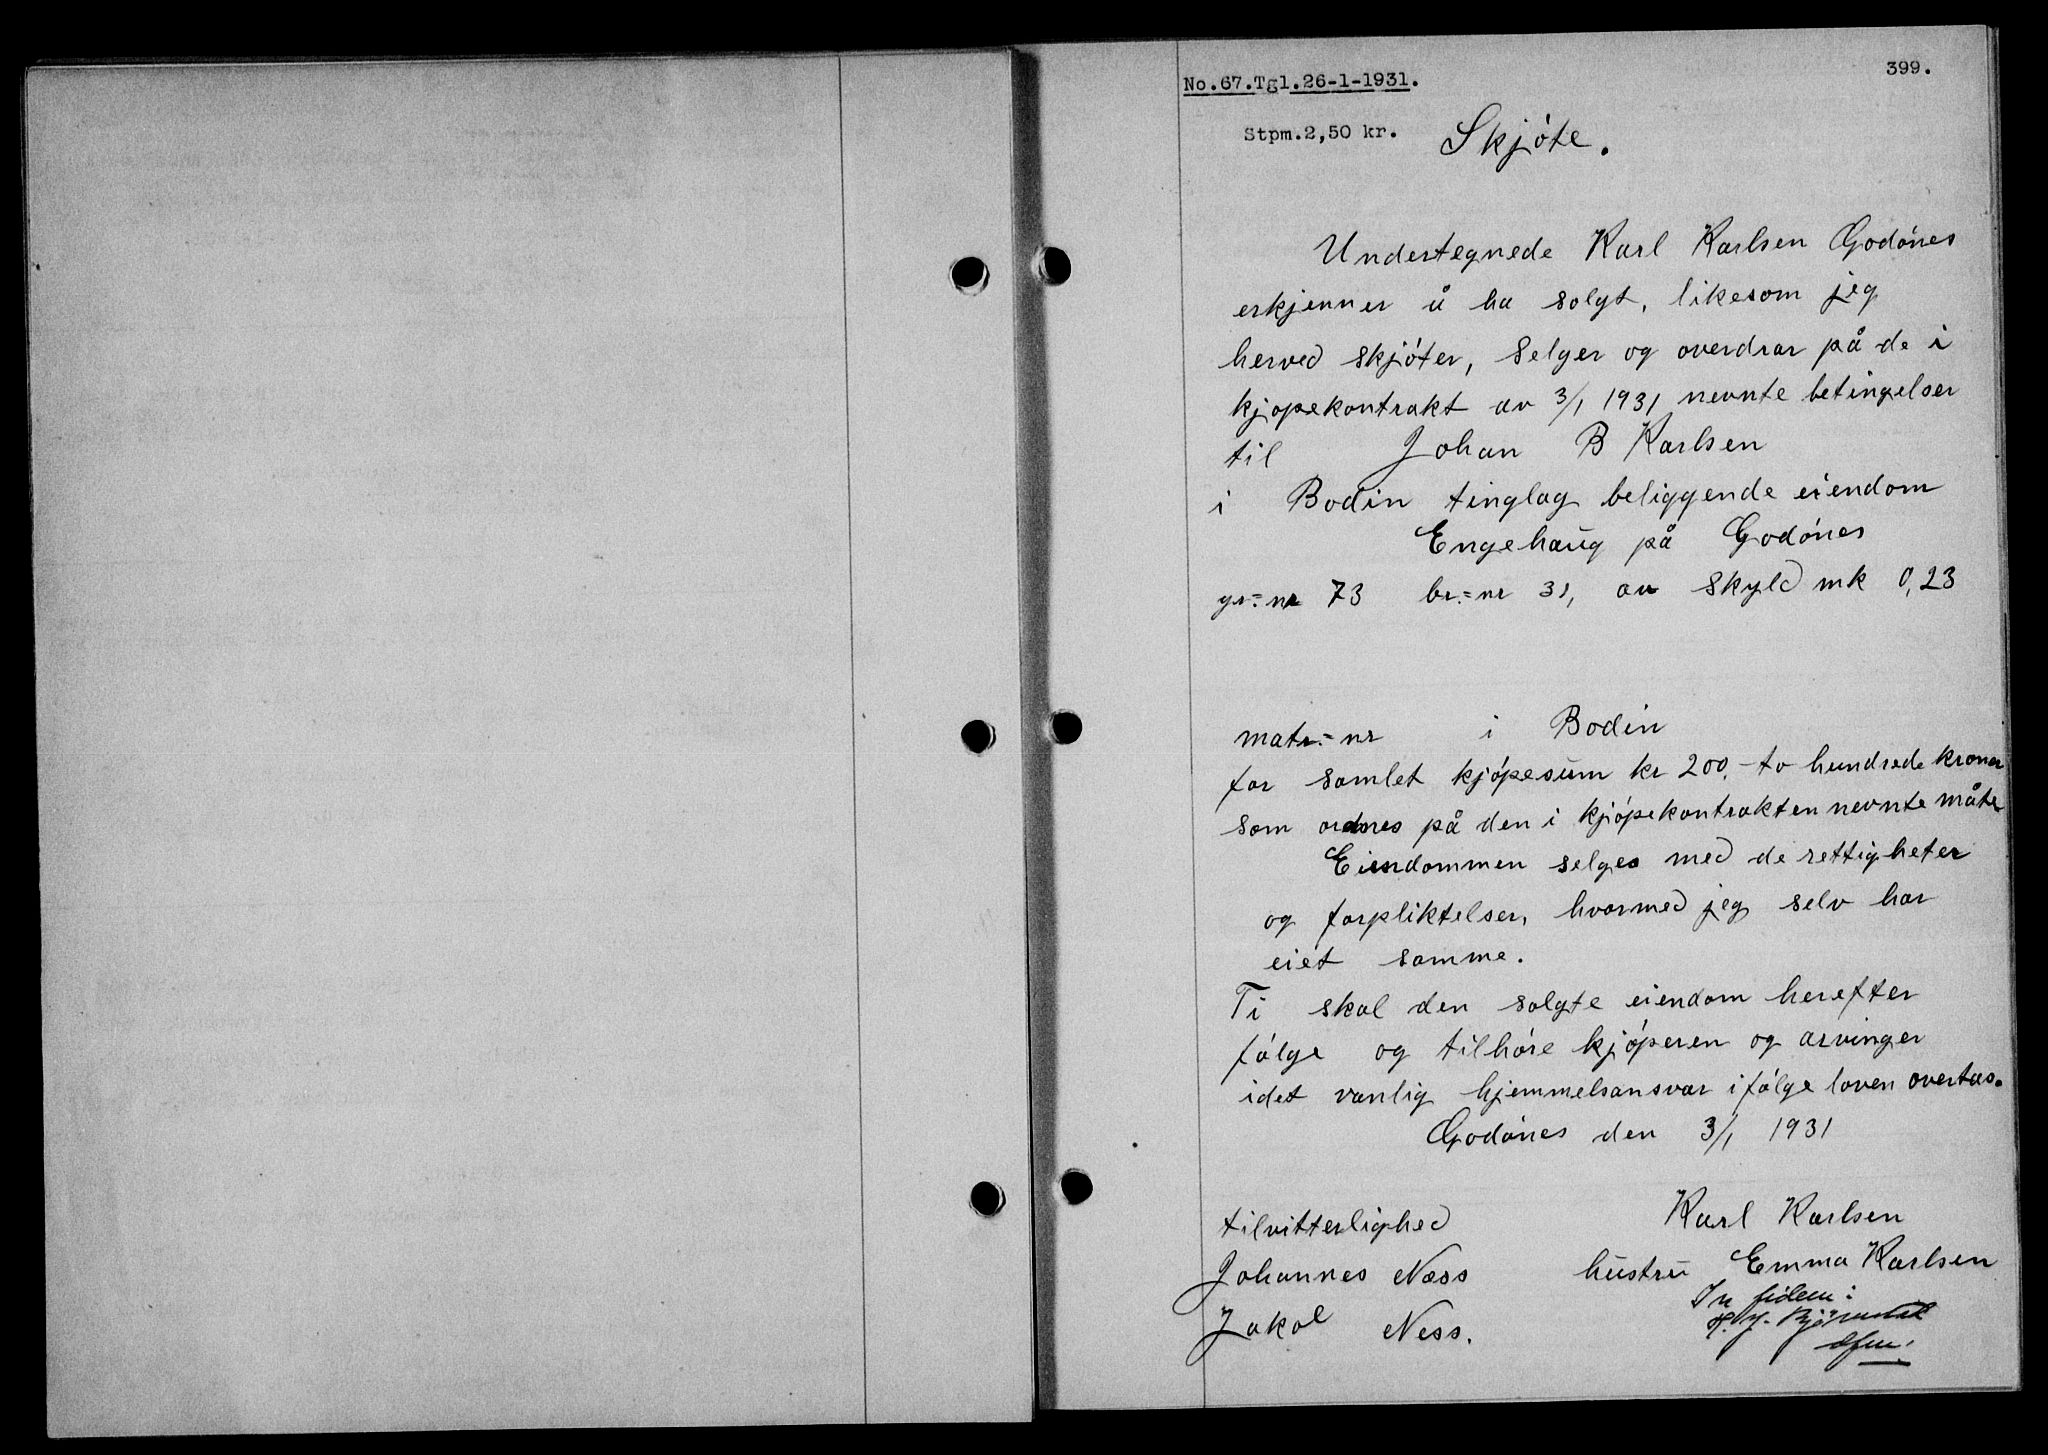 399.
No.67.Tgl.26-1-1931.
Stpm.2,50 kr.
Skjóte.
Undertegnede Karl Karlsen Godónes
erkjenner å ha solgt, likesom jeg
herved skjóter, selger og overdrar på de i
kjopekontrakt av 3/1 1931 nevnte betingelser
til Johan B Karlsen
i Bodin tinglag beliggende eiendom
Engehaug på Godónes
gr.=nr 73 br.=nr 31, av skyld mk 0,23
matr.=nr i Bodin
for samlet kjópesum kr 200.- to hundrede kroner
som ordnes på den i kjópekontrakten nevnte måte
Eiendommen selges med de rettigheter
og forpliktelser, hvormed jeg selv har
eiet samme.
Ti skal den solgte eiendom herefter
fólge og tilhóre kjóperen og arvinger
idet vanlig hjemmelsansvar ifólge loven overtas.
Godónes den 3/1 1931
tilvitterlighed
Karl Karlsen
Johannes Næss
hustru Emma Karlsen
Jakob Ness.
In fidem: